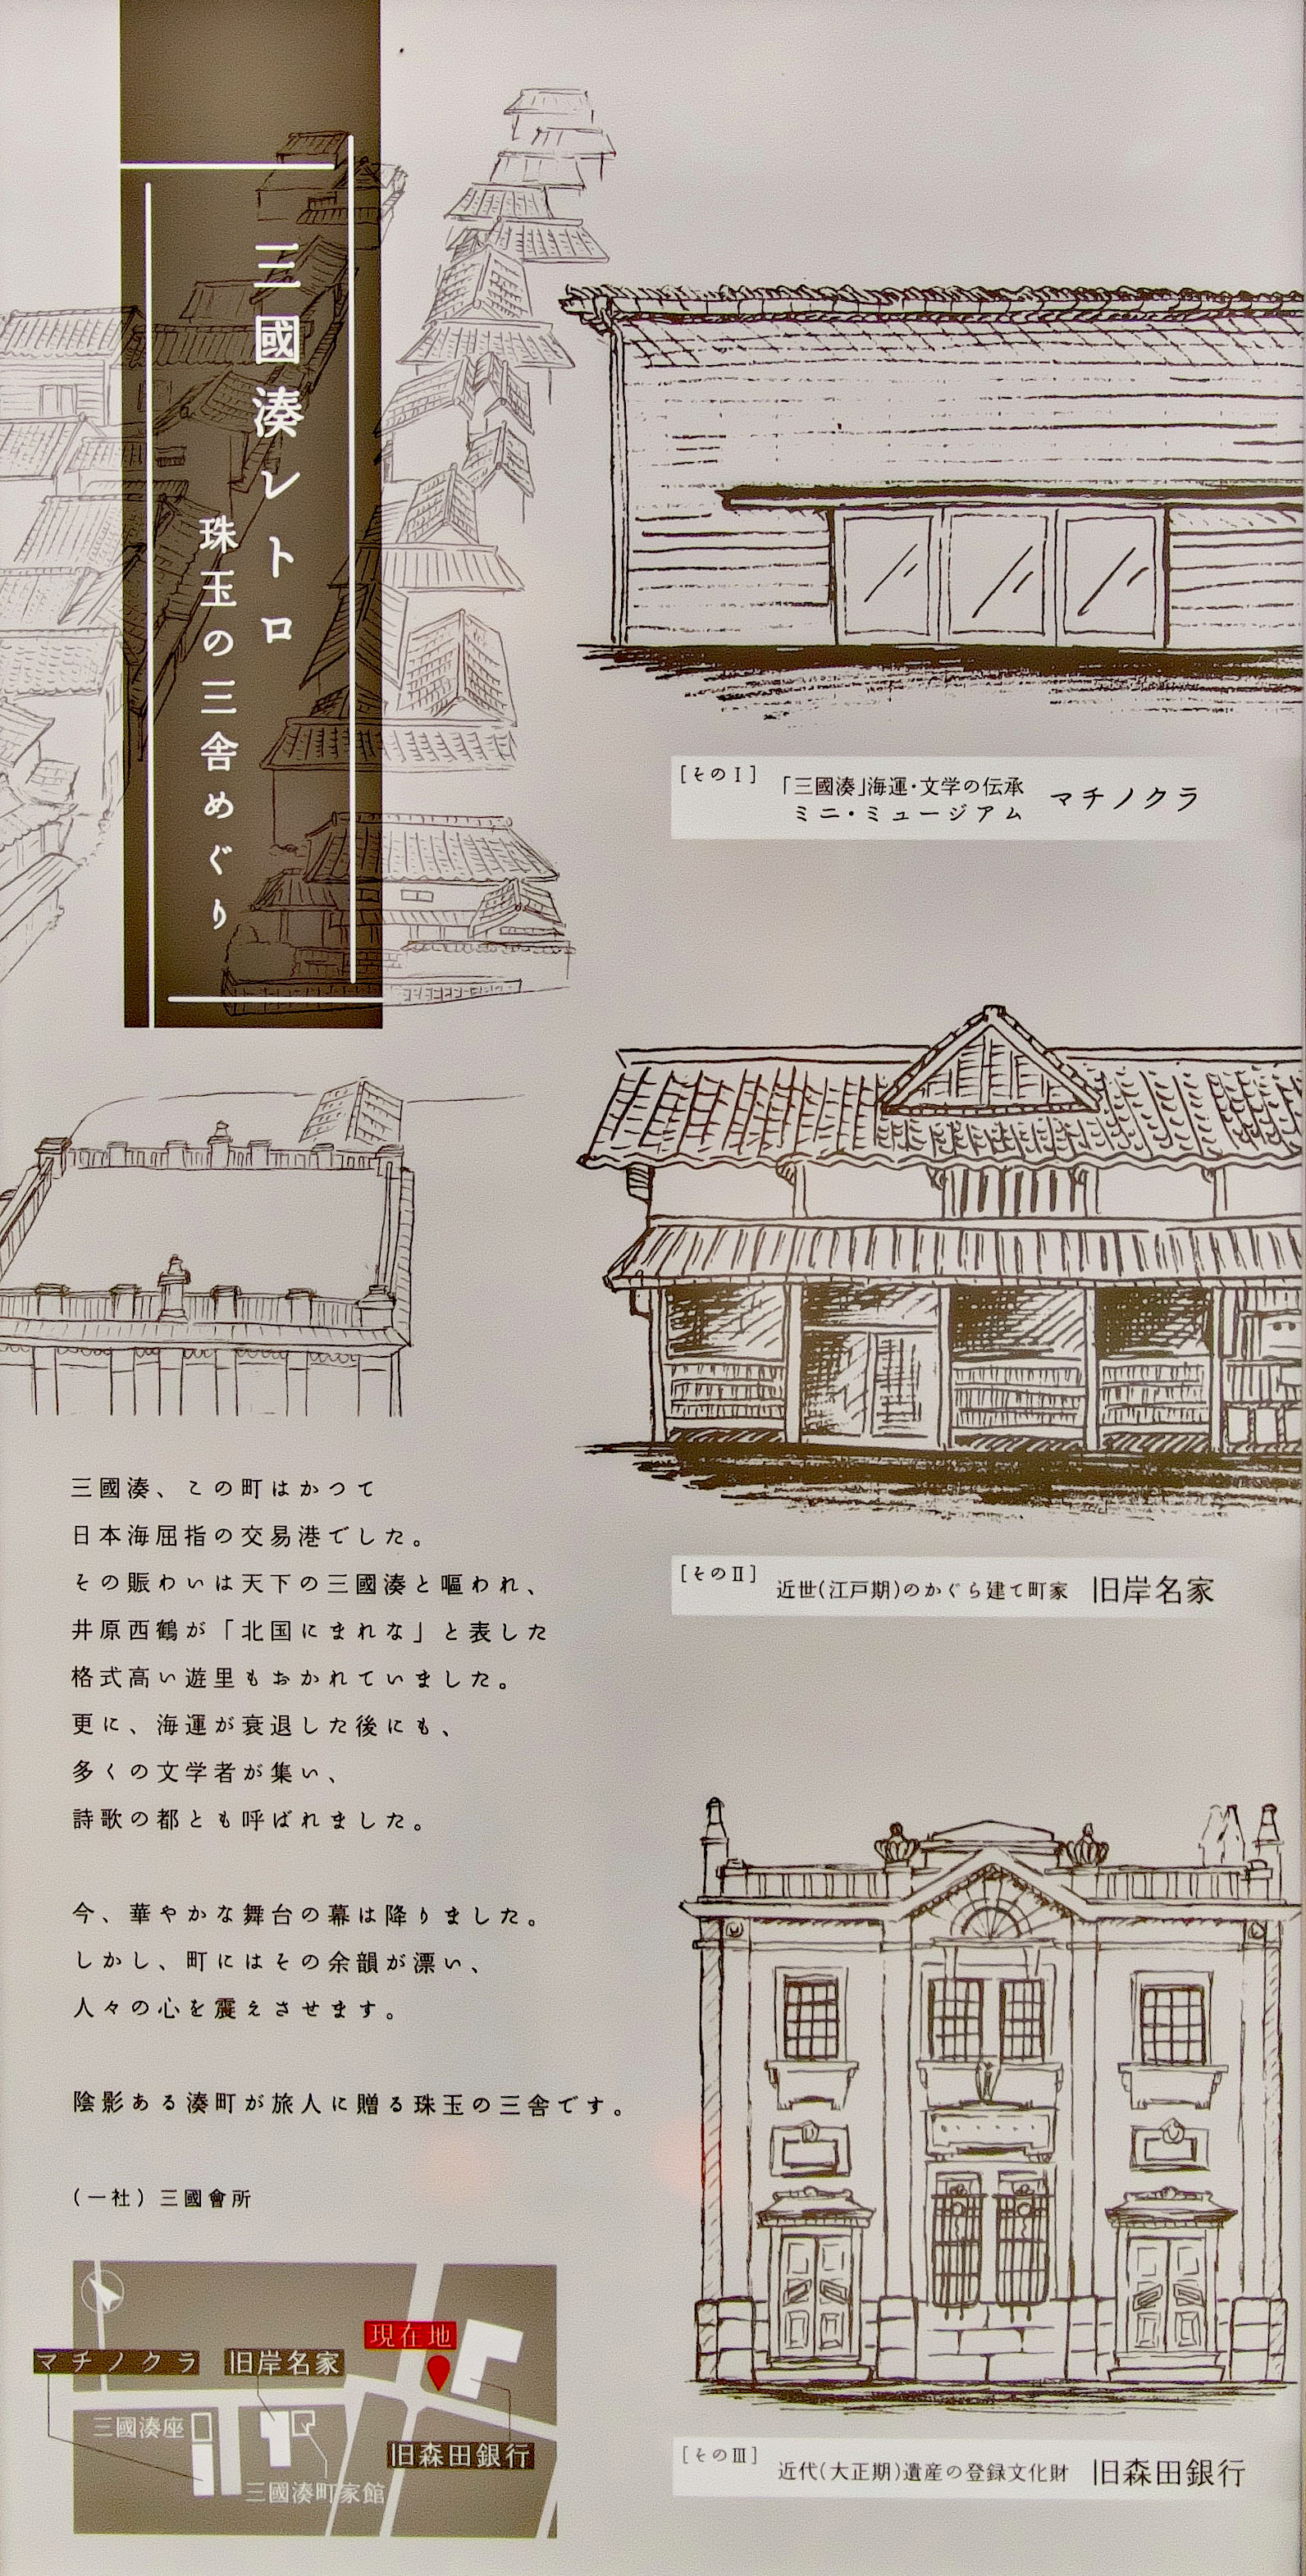 三國湊レトロ
珠玉の三舎めぐり
[そのⅠ]
「三國湊」海運・文学の伝承
ミニ・ミュージアム
マチノクラ
[そのⅡ]
近世(江戸期)のかぐら建て町家
旧岸名家
三國湊、この町はかつて
日本海屈指の交易港でした。
その賑わいは天下の三國湊と嘔われ、
井原西鶴が「北国にまれな」と表した
格式高い遊里もおかれていました。
更に、海運が衰退した後にも、
多くの文学者が集い、
詩歌の都とも呼ばれました。
今、華やかな舞台の幕は降りました。
しかし、町にはその余韻が漂い、
人々の心を震えさせます。
陰影ある湊町が旅人に贈る珠玉の三舎です。
(一社)三國會所
現在地
マチノクラ
旧岸名家
三國湊座
旧森田銀行
三國湊町家館
[そのⅢ]
近代(大正期)遺産の登録文化財
旧森田銀行